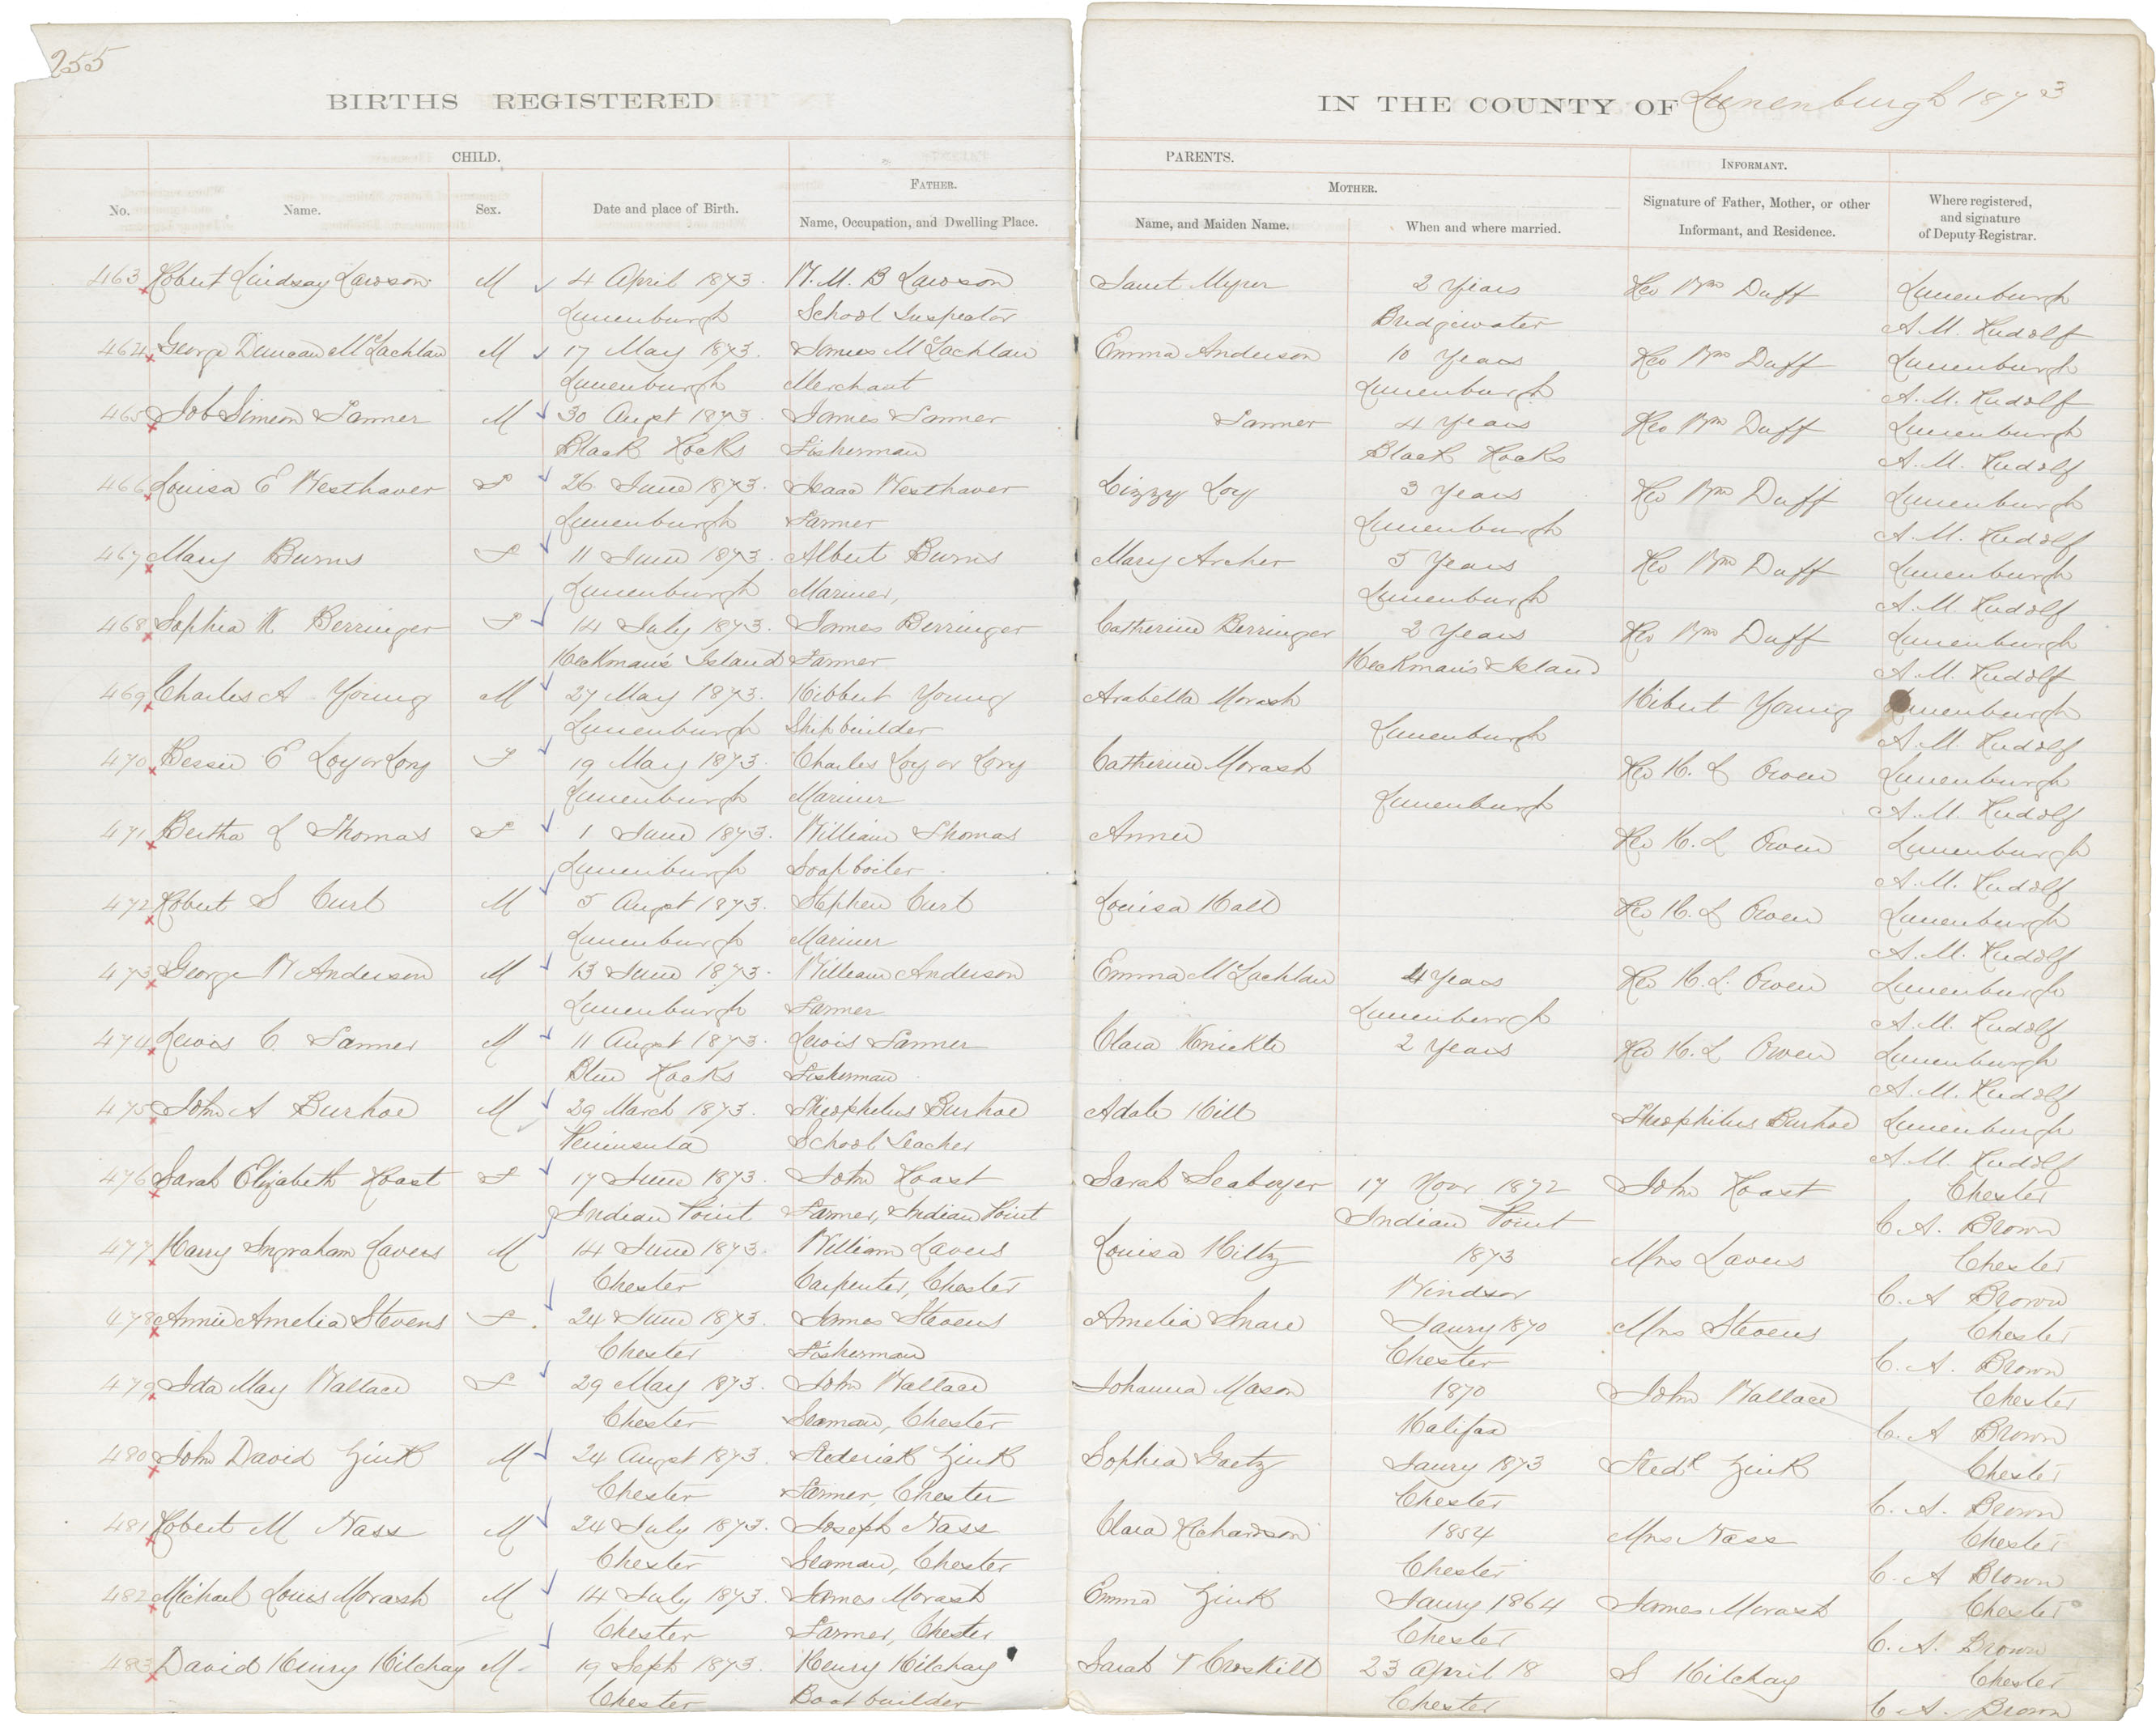 255
BIRTHS REGISTERED IN THE COUNTY OF Lunenburgh 1873
CHILD. PARENTS. INFORMANT.
FATHER. MOTHER.
No. Name. Sex. Date and place of Birth. Name, Occupation, and Dwelling Place. Name, and Maiden Name. When and where married. Signature of Father, Mother, or other Informant, and Residence. Where registered, and signature of Deputy Registrar.
463 Robert Lindsay Lawson M 4 April 1873. W. M. B Lawson Janet Myrer 2 Years Rev Wm Duff Lunenburgh
Lunenburgh School Inspector Bridgewater A. M. Rudolf
464 George Duncan McLachlan M 17 May 1873. James McLachlan Emma Anderson 10 Years Rev Wm Duff Lunenburgh
Lunenburgh Merchant Lunenburgh A. M. Rudolf
465 Job Simeon Tanner M 30 Augst 1873. James Tanner Tanner 4 Years Rev Wm Duff Lunenburgh
Black Rocks Fisherman Black Rocks A. M. Rudolf
466 Louisa E Westhaver F 26 June 1873. Isaac Westhaver Lizzy Loy 3 Years Rev Wm Duff Lunenburgh
Lunenburgh Farmer Lunenburgh A. M. Rudolf
467 Mary Burns F 11 June 1873. Albert Burns Mary Archer 5 Years Rev Wm Duff Lunenburgh
Lunenburgh Mariner, Lunenburgh A. M Rudolf
468 Sophia R Berringer F 14 July 1873. James Berringer Catherine Berringer 2 Years Rev Wm Duff Lunenburgh
Heckman's Island Farmer Heckman's Island A. M. Rudolf
469 Charles A Young M 27 May 1873. Hibbert Young Arabella Morash Hibert Young Lunenburgh
Lunenburgh Ship builder Lunenburgh A. M Rudolf
470 Bessie E Loy or Long F 19 May 1873. Charles Loy or Long Catherine Morash Rev H. L Owen Lunenburgh
Lunenburgh Mariner Lunenburgh A. M. Rudolf
471 Bertha L Thomas F 1 June 1873. William Thomas Annie Rev H. L Owen Lunenburgh
Lunenburgh Soap boiler A. M. Rudolf
472 Robert S Curl M 5 Augst 1873. Stephen Curl Louisa Hall Rev H. L Owen Lunenburgh
Lunenburgh Mariner A. M. Rudolf
473 George W Anderson M 13 June 1873. William Anderson Emma McLachlan 4 Years Rev H. L. Owen Lunenburgh
Lunenburgh Farmer Lunenburgh A. M. Rudolf
474 Lewis C. Tanner M 11 Augst 1873. Lewis Tanner Clara Knickle 2 Years Rev H. L Owen Lunenburgh
Blue Rocks Fisherman A. M. Rudolf
475 John A Burhoe M 29 March 1873. Theophilus Burhoe Adale Hill Theophilus Burhoe Lunenburgh
Peninsula School Teacher A. M. Rudolf
476 Sarah Elizabeth Hoast F 17 June 1873. John Hoast Sarah Seaboyer 17 Novr 1872 John Hoast Chester
Indian Point Farmer, Indian Point Indian Point C. A. Brown
477 Harry Ingraham Lavers M 14 June 1873. William Lavers Louisa Hiltz 1873 Mrs Lavers Chester
Chester Carpenter, Chester Windsor C. A Brown
478 Annie Amelia Stevens F. 24 June 1873. James Stevens Amelia Snare Jaury 1870 Mrs Stevens Chester
Chester Fisherman Chester C. A. Brown
479 Ida May Wallace F 29 May 1873. John Wallace Johanna Mason 1870 John Wallace Chester
Chester Seaman, Chester Halifax C. A Brown
480 John David Zink M 24 Augst 1873. Frederick Zink Sophia Gaetz Jaury 1873 Fredk Zink Chester
Chester Farmer, Chester Chester C. A. Brown
481 Robert M Nass M 24 July 1873. Joseph Nass Clara Richardson 1854 Mrs Nass Chester
Chester Seaman, Chester Chester C. A Brown
482 Michael Louis Morash M 14 July 1873. James Morash Emma Zink Jaury 1864 James Morash Chester
Chester Farmer, Chester Chester C. A. Brown
483 David Henry Hilchay M 19 Sept 1873. Henry Hilchay Sarah T Croskill 23 April 18 S Hilchay Chester
Chester Boat builder Chester C A. Brown